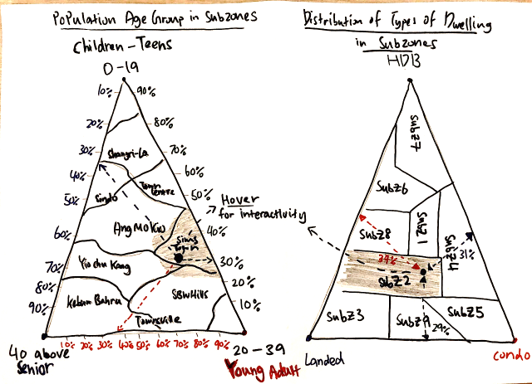 Population Age Group in Subzones
Children-Teens
0-19
10%
20%
30%
40%
50%
60%
70%
80%
90%
90%
80%
70%
60%
50%
40%
30%
20%
10%
Shangri-La
Town Centre
Ang Mo Kio
Yio chu Kang
Kebun Bahru
SBW Hills
Townsville
10% 20% 30% 40% 50% 60% 70% 80% 90%
40 above
Senior
20-39
Young Adult
Hover
for interactivity
Distribution of Types of Dwelling
in Subzones
HDB
SubZ7
SubZ6
SubZ8
SubZ1
SubZ4
31%
39%
SubZ2
SubZ3
SubZ9
29%
SubZ5
Landed
Condo